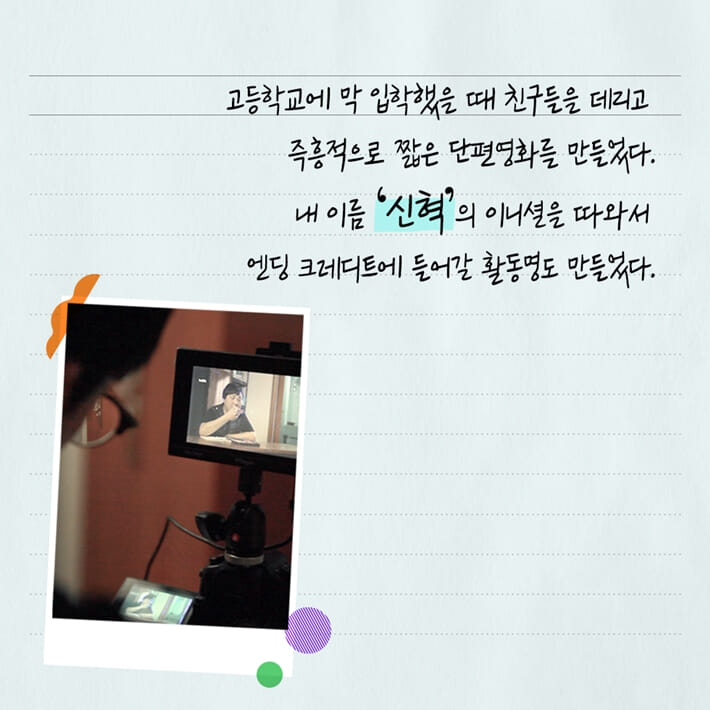 고등학교에 막 입학했을 때 친구들을 데리고
즉흥적으로 짧은 단편영화를 만들었다.
내 이름 '신혁'의 이니셜을 따와서
엔딩 크레디트에 들어갈 활동명도 만들었다.